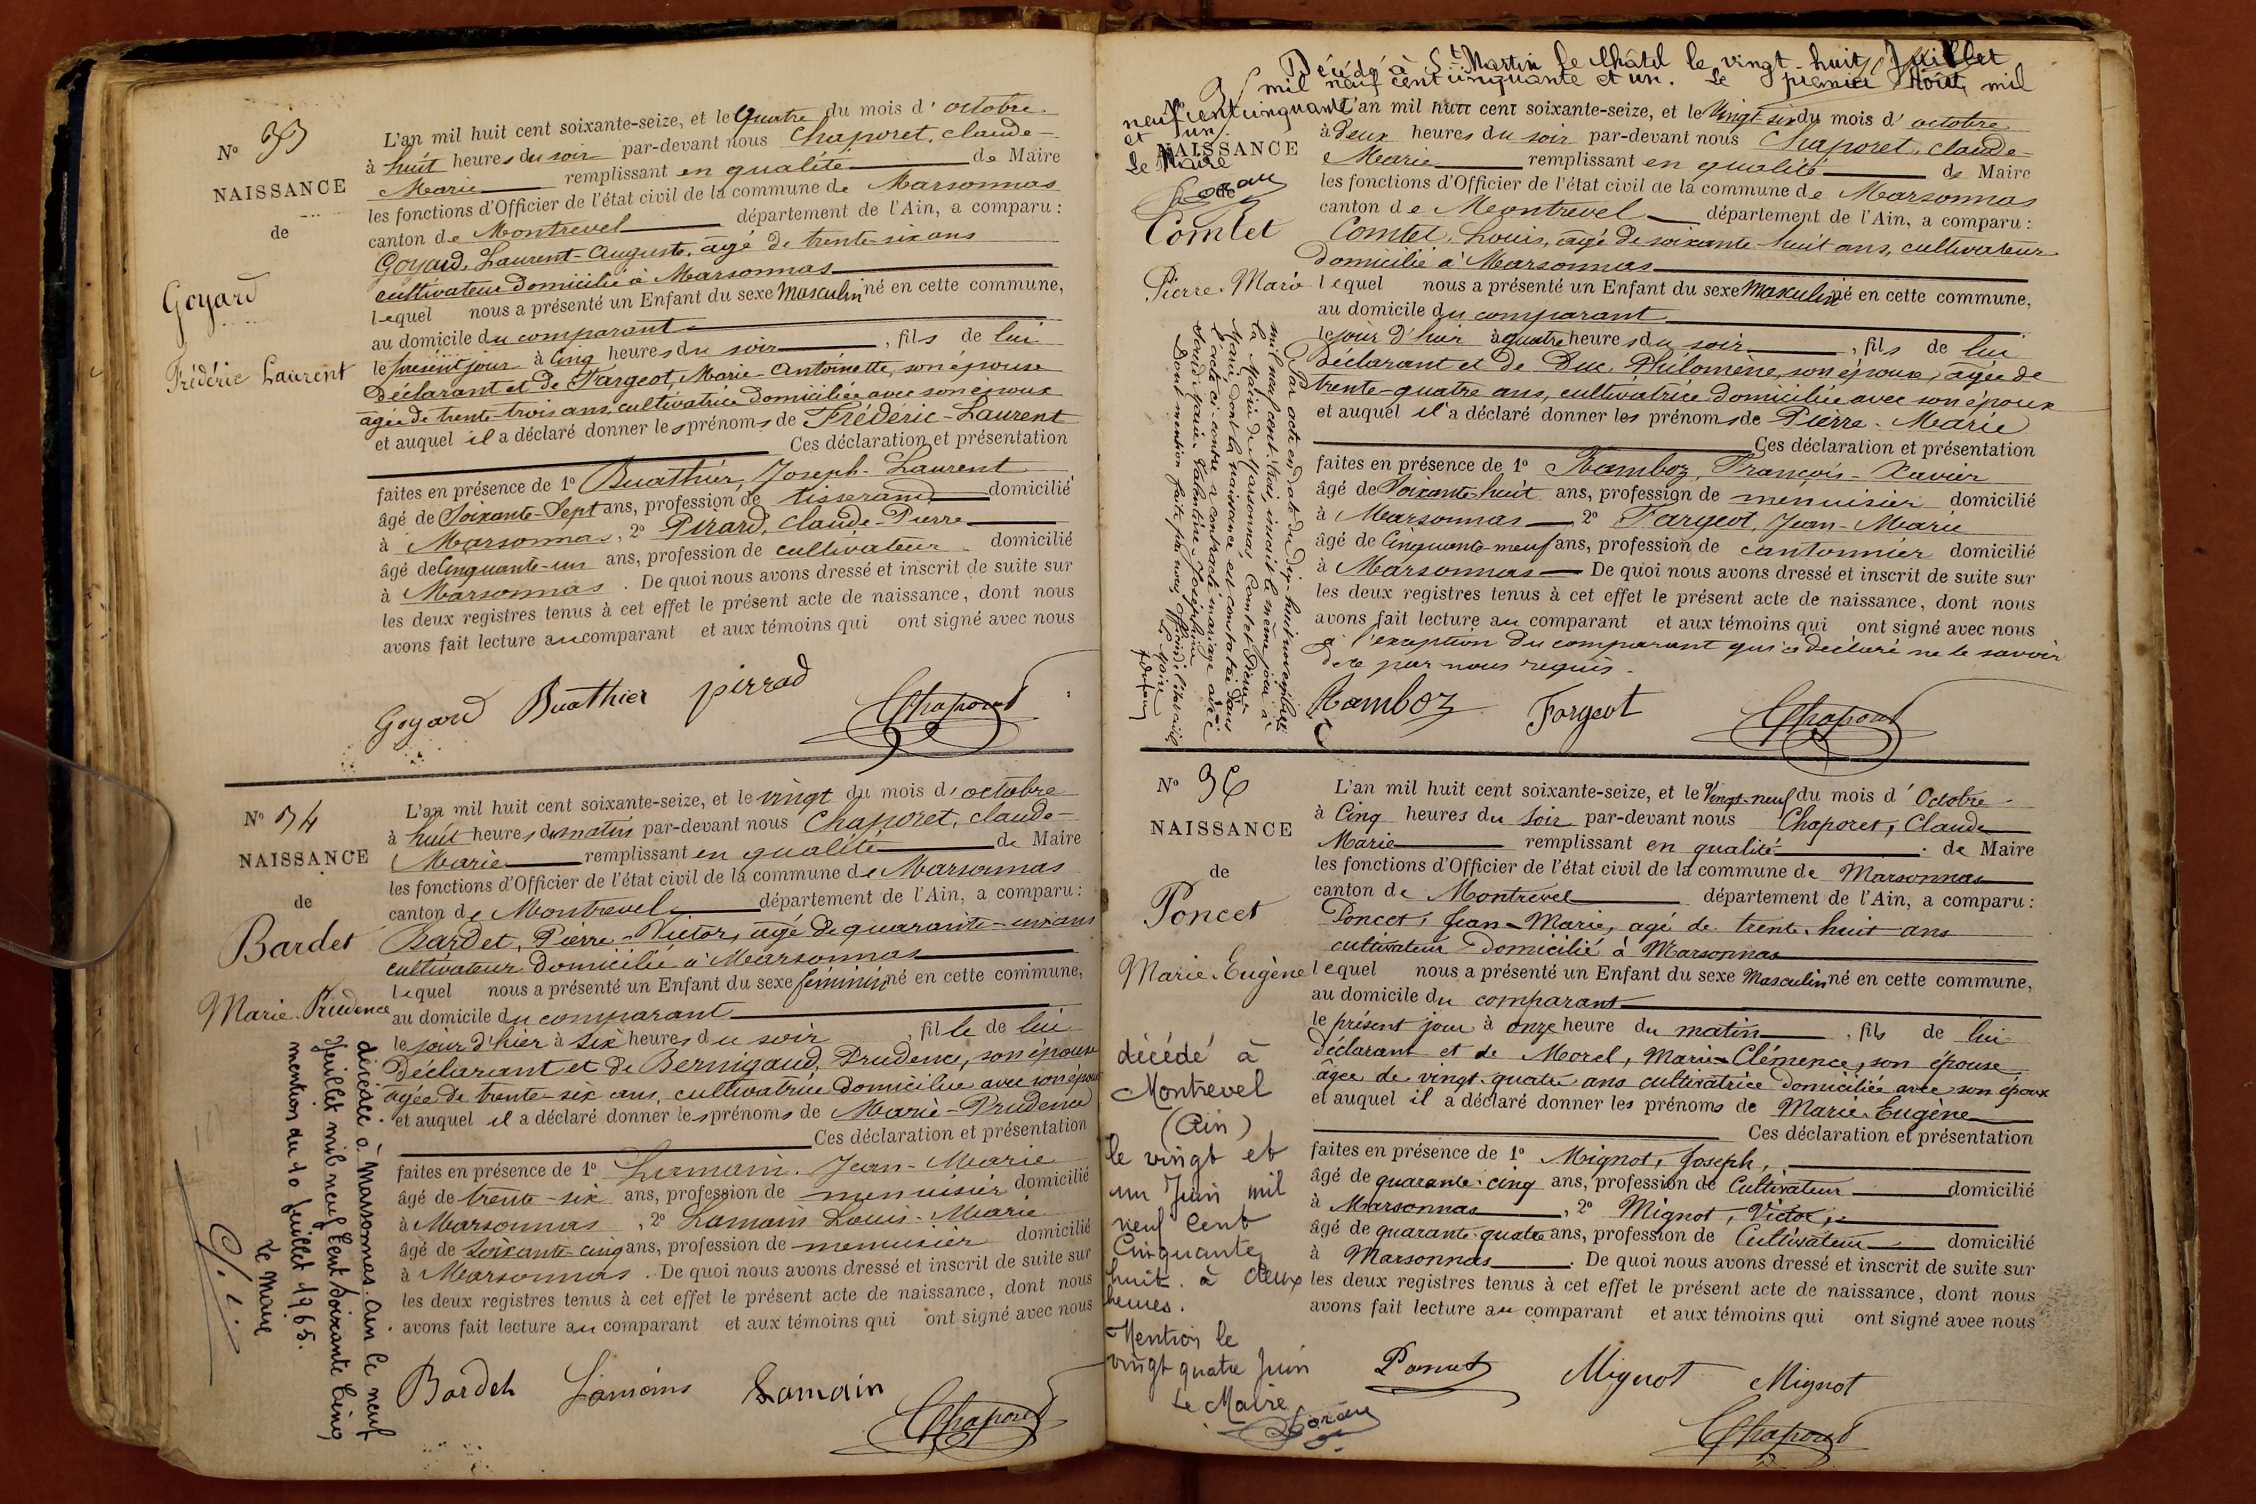 Nº 33
NAISSANCE
de
Goyard
Frédéric Laurent
L'an mil huit cent soixante-seize, et le quatre du mois d' octobre
à huit heures du soir par-devant nous Chaporet, Claude-
Marie remplissant en qualité de Maire
les fonctions d'Officier de l'état civil de la commune de Marsonnas
canton de Montrevel département de l'Ain, a comparu :
Goyard, Laurent-Auguste, âgé de trente-six ans
cultivateur domicilié à Marsonnas
lequel nous a présenté un Enfant du sexe Masculin né en cette commune,
au domicile du comparant
le présent jour à Cinq heures du soir, fils de lui
déclarant et de Fargeot, Marie-Antoinette, son épouse
âgée de trente-trois ans, cultivatrice domiciliée avec son époux
et auquel il a déclaré donner les prénoms de Frédéric-Laurent
Ces déclaration et présentation
faites en présence de 1º Buathier, Joseph-Laurent
âgé de Soixante-Sept ans, profession de tisserand domicilié
à Marsonnas, 2º Pirard, Claude-Pierre
âgé de Cinquante-un ans, profession de cultivateur domicilié
à Marsonnas. De quoi nous avons dressé et inscrit de suite sur
les deux registres tenus à cet effet le présent acte de naissance, dont nous
avons fait lecture au comparant et aux témoins qui ont signé avec nous
Goyard Buathier pirrad Chaporet
Nº 34
NAISSANCE
de
Bardet
Marie-Prudence
L'an mil huit cent soixante-seize, et le vingt du mois d' octobre
à huit heures du matin par-devant nous Chaporet, Claude-
Marie remplissant en qualité de Maire
les fonctions d'Officier de l'état civil de la commune de Marsonnas
canton de Montrevel département de l'Ain, a comparu :
Bardet, Pierre-Victor, âgé de quarante-un ans
cultivateur domicilié à Marsonnas
lequel nous a présenté un Enfant du sexe féminin né en cette commune,
au domicile du comparant
le jour d'hier à Six heures du soir, fille de lui
Déclarant et de Bernigaud, Prudence, son épouse
âgée de trente-six ans, cultivatrice domiciliée avec son époux
et auquel il a déclaré donner les prénoms de Marie-Prudence
Ces déclaration et présentation
faites en présence de 1º Lamain, Jean-Marie
âgé de trente-six ans, profession de menuisier domicilié
à Marsonnas, 2º Lamain Louis-Marie
âgé de Soixante-cinq ans, profession de menuisier domicilié
à Marsonnas. De quoi nous avons dressé et inscrit de suite sur
les deux registres tenus à cet effet le présent acte de naissance, dont nous
avons fait lecture au comparant et aux témoins qui ont signé avec nous
Bardet Lamain Lamain Chaporet
décédée à Marsonnas. Ain le neuf
Juillet mil neuf Cent Soixante Cinq
mention du 10 Juillet 1965.
Le Maire
Décédé à St Martin le Châtel le vingt-huit Juillet
mil neuf cent cinquante et un. Le premier Août mil
neuf cent cinquante
et un.
Le Maire
Nº 35
NAISSANCE
de
Comtet
Pierre-Marie
L'an mil huit cent soixante-seize, et le Vingt six du mois d' octobre
à deux heures du soir par-devant nous Chaporet, Claude-
Marie remplissant en qualité de Maire
les fonctions d'Officier de l'état civil de la commune de Marsonnas
canton de Montrevel département de l'Ain, a comparu :
Comtet, Louis, âgé de soixante-huit ans, cultivateur
domicilié à Marsonnas
lequel nous a présenté un Enfant du sexe Masculin né en cette commune,
au domicile du comparant
le jour d'hier à quatre heures du soir, fils de lui
déclarant et de Duc, Philomène, son épouse, âgée de
trente-quatre ans, cultivatrice domiciliée avec son époux
et auquel il a déclaré donner les prénoms de Pierre-Marie
Ces déclaration et présentation
faites en présence de 1º Ramboz, François-Xavier
âgé de Soixante-huit ans, profession de menuisier domicilié
à Marsonnas, 2º Fargeot, Jean-Marie
âgé de Cinquante-neuf ans, profession de cantonnier domicilié
à Marsonnas De quoi nous avons dressé et inscrit de suite sur
les deux registres tenus à cet effet le présent acte de naissance, dont nous
avons fait lecture au comparant et aux témoins qui ont signé avec nous
à l'exception du comparant qui a déclaré ne le savoir
de ce par nous requis.
Ramboz Fargeot Chaporet
Par acte en date du dix-huit novembre
mil neuf cent trois, inscrit le même jour à
la Mairie de Marsonnas, Comtet Pierre
Marie, dont la naissance est constatée dans
l'acte ci-contre a contracté mariage avec
Marie Valentine Joséphine
Dont mention faite par nous, Officier de l'état civil,
Le Maire
Nº 36
NAISSANCE
de
Poncet
Marie-Eugène
L'an mil huit cent soixante-seize, et le Vingt-neuf du mois d' Octobre
à Cinq heures du Soir par-devant nous Chaporet, Claude
Marie remplissant en qualité de Maire
les fonctions d'Officier de l'état civil de la commune de Marsonnas
canton de Montrevel département de l'Ain, a comparu :
Poncet, Jean-Marie, agé de trente-huit ans
cultivateur Domicilié à Marsonnas
lequel nous a présenté un Enfant du sexe Masculin né en cette commune,
au domicile du comparant
le présent jour à onze heure du matin, fils de lui
déclarant et de Morel, Marie-Clémence, son épouse
âgée de vingt-quatre ans cultivatrice domiciliée avec son époux
et auquel il a déclaré donner les prénoms de Marie-Eugène
Ces déclaration et présentation
faites en présence de 1º Mignot, Joseph,
âgé de quarante-cinq ans, profession de Cultivateur domicilié
à Marsonnas, 2º Mignot, Victor,
âgé de quarante-quatre ans, profession de Cultivateur domicilié
à Marsonnas. De quoi nous avons dressé et inscrit de suite sur
les deux registres tenus à cet effet le présent acte de naissance, dont nous
avons fait lecture au comparant et aux témoins qui ont signé avec nous
Poncet Mignot Mignot
Chaporet
décédé à
Montrevel
(Ain)
le vingt et
un Juin mil
neuf Cent
Cinquante
huit. à deux
heures.
Mention le
vingt quatre Juin
Le Maire